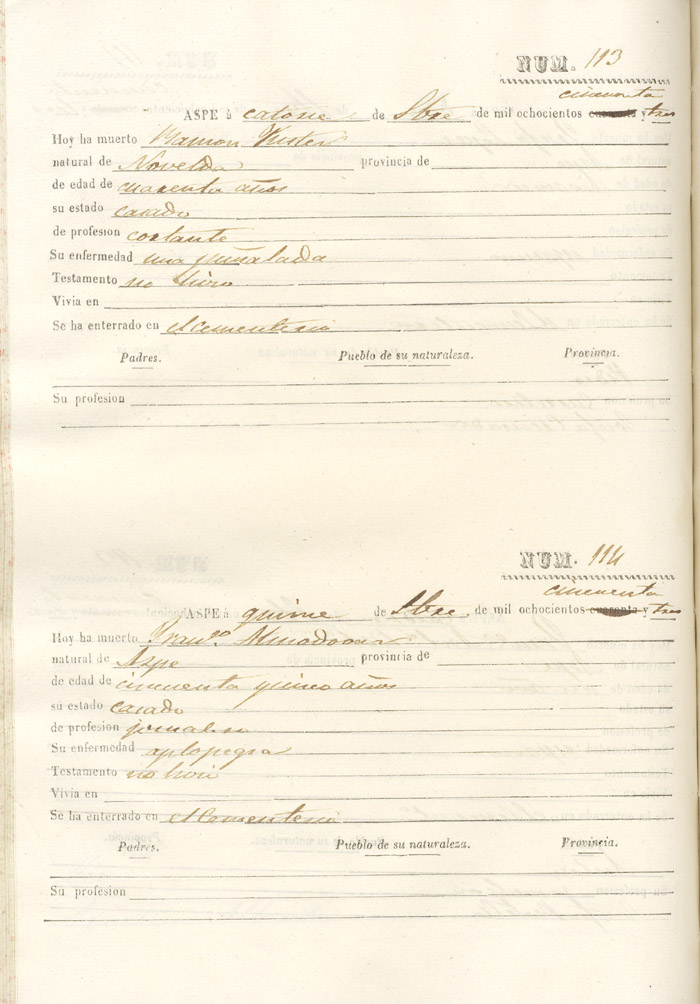 NUM. 113
cincuenta
ASPE á catorse de de mil ochocientos cuarenta y tres
Hoy ha muerto Ramon
natural de Novelda provincia de
de edad de cuarenta años
su estado casado
de profesion cortante
Su enfermedad una puñalada
Testamento no hiso
Vivia en
Se ha enterrado en el Cementerio
Padres. Pueblo de su naturaleza. Provincia.
Su profesion
NUM. 114
cincuenta
ASPE á quinse de de mil ochocientos cuarenta y tres
Hoy ha muerto Fran.co
natural de Aspe provincia de
de edad de cincuenta y años
su estado casado
de profesion jornalero
Su enfermedad
Testamento no
Vivia en
Se ha enterrado en el Cementerio
Padres. Pueblo de su naturaleza. Provincia.
Su profesion